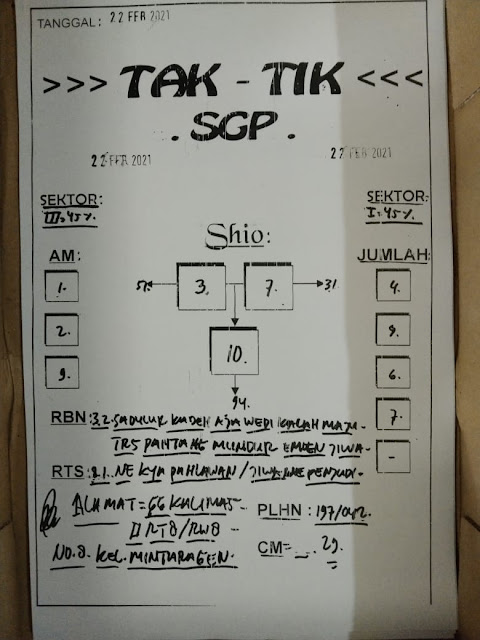 TANGGAL: 22 FEB 2021
>>> TAK - TIK <<<
. SGP .
22 FEB 2021 22 FEB 2021
SEKTOR: SEKTOR:
III=45%. I=45%.
Shio:
AM: JUMLAH:
1. 51. 3. 7. 31. 4.
2. 10. 9.
9. 6.
94.
RBN: 3.2. SADULUR KADEH AJA WEDI KALAH MAJU 7.
TRS PANTANG MUNDUR JIWA- -
RTS: 21. NE KYA PAHLAWAN/JIWANE PENJUDI-
ALAMAT=GG KALIMAS- PLHN: 197/042.
II RT8/RW8 -
NO.8. KEL. MINTARAGEN. CM=....29.